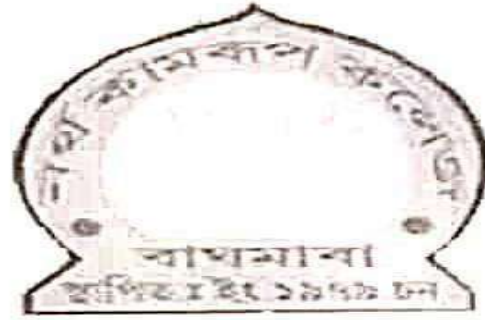 নাথ কামৰূপ কলেজ
বাঘমাৰা
স্থাপিত ঃ ইং ১৯৭৯ চন